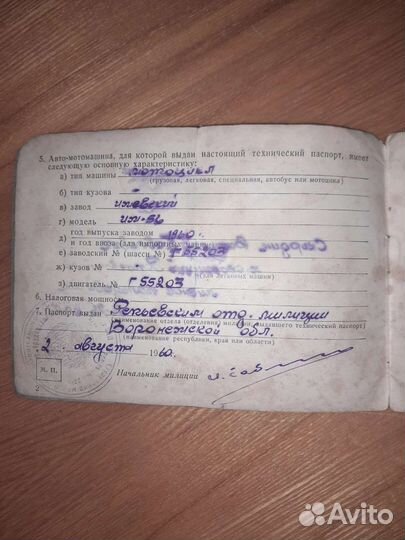 5. Авто-мотомашина, для которой выдан настоящий технический паспорт, имеет
следующую основную характеристику:
а) тип машины мотоцикл
(грузовая, легковая, специальная, автобус или мотоцикл)
б) тип кузова –
в) завод Ижевский
г) модель ИЖ-56
д) год выпуска заводом 1960 г.
и год ввоза (для импортных машин)
е) заводской № (шасси №) Г 55203
ж) кузов №
(для легковых машин)
з) двигатель № Г 55203
6. Налоговая мощность
7. Паспорт выдан Репьевским отд. милиции
(наименование отдела (отделения) милиции, выдавшего технический паспорт)
Воронежской обл.
(наименование республики, края или области)
2 августа 1960.
М. П.
Начальник милиции
2
Avito